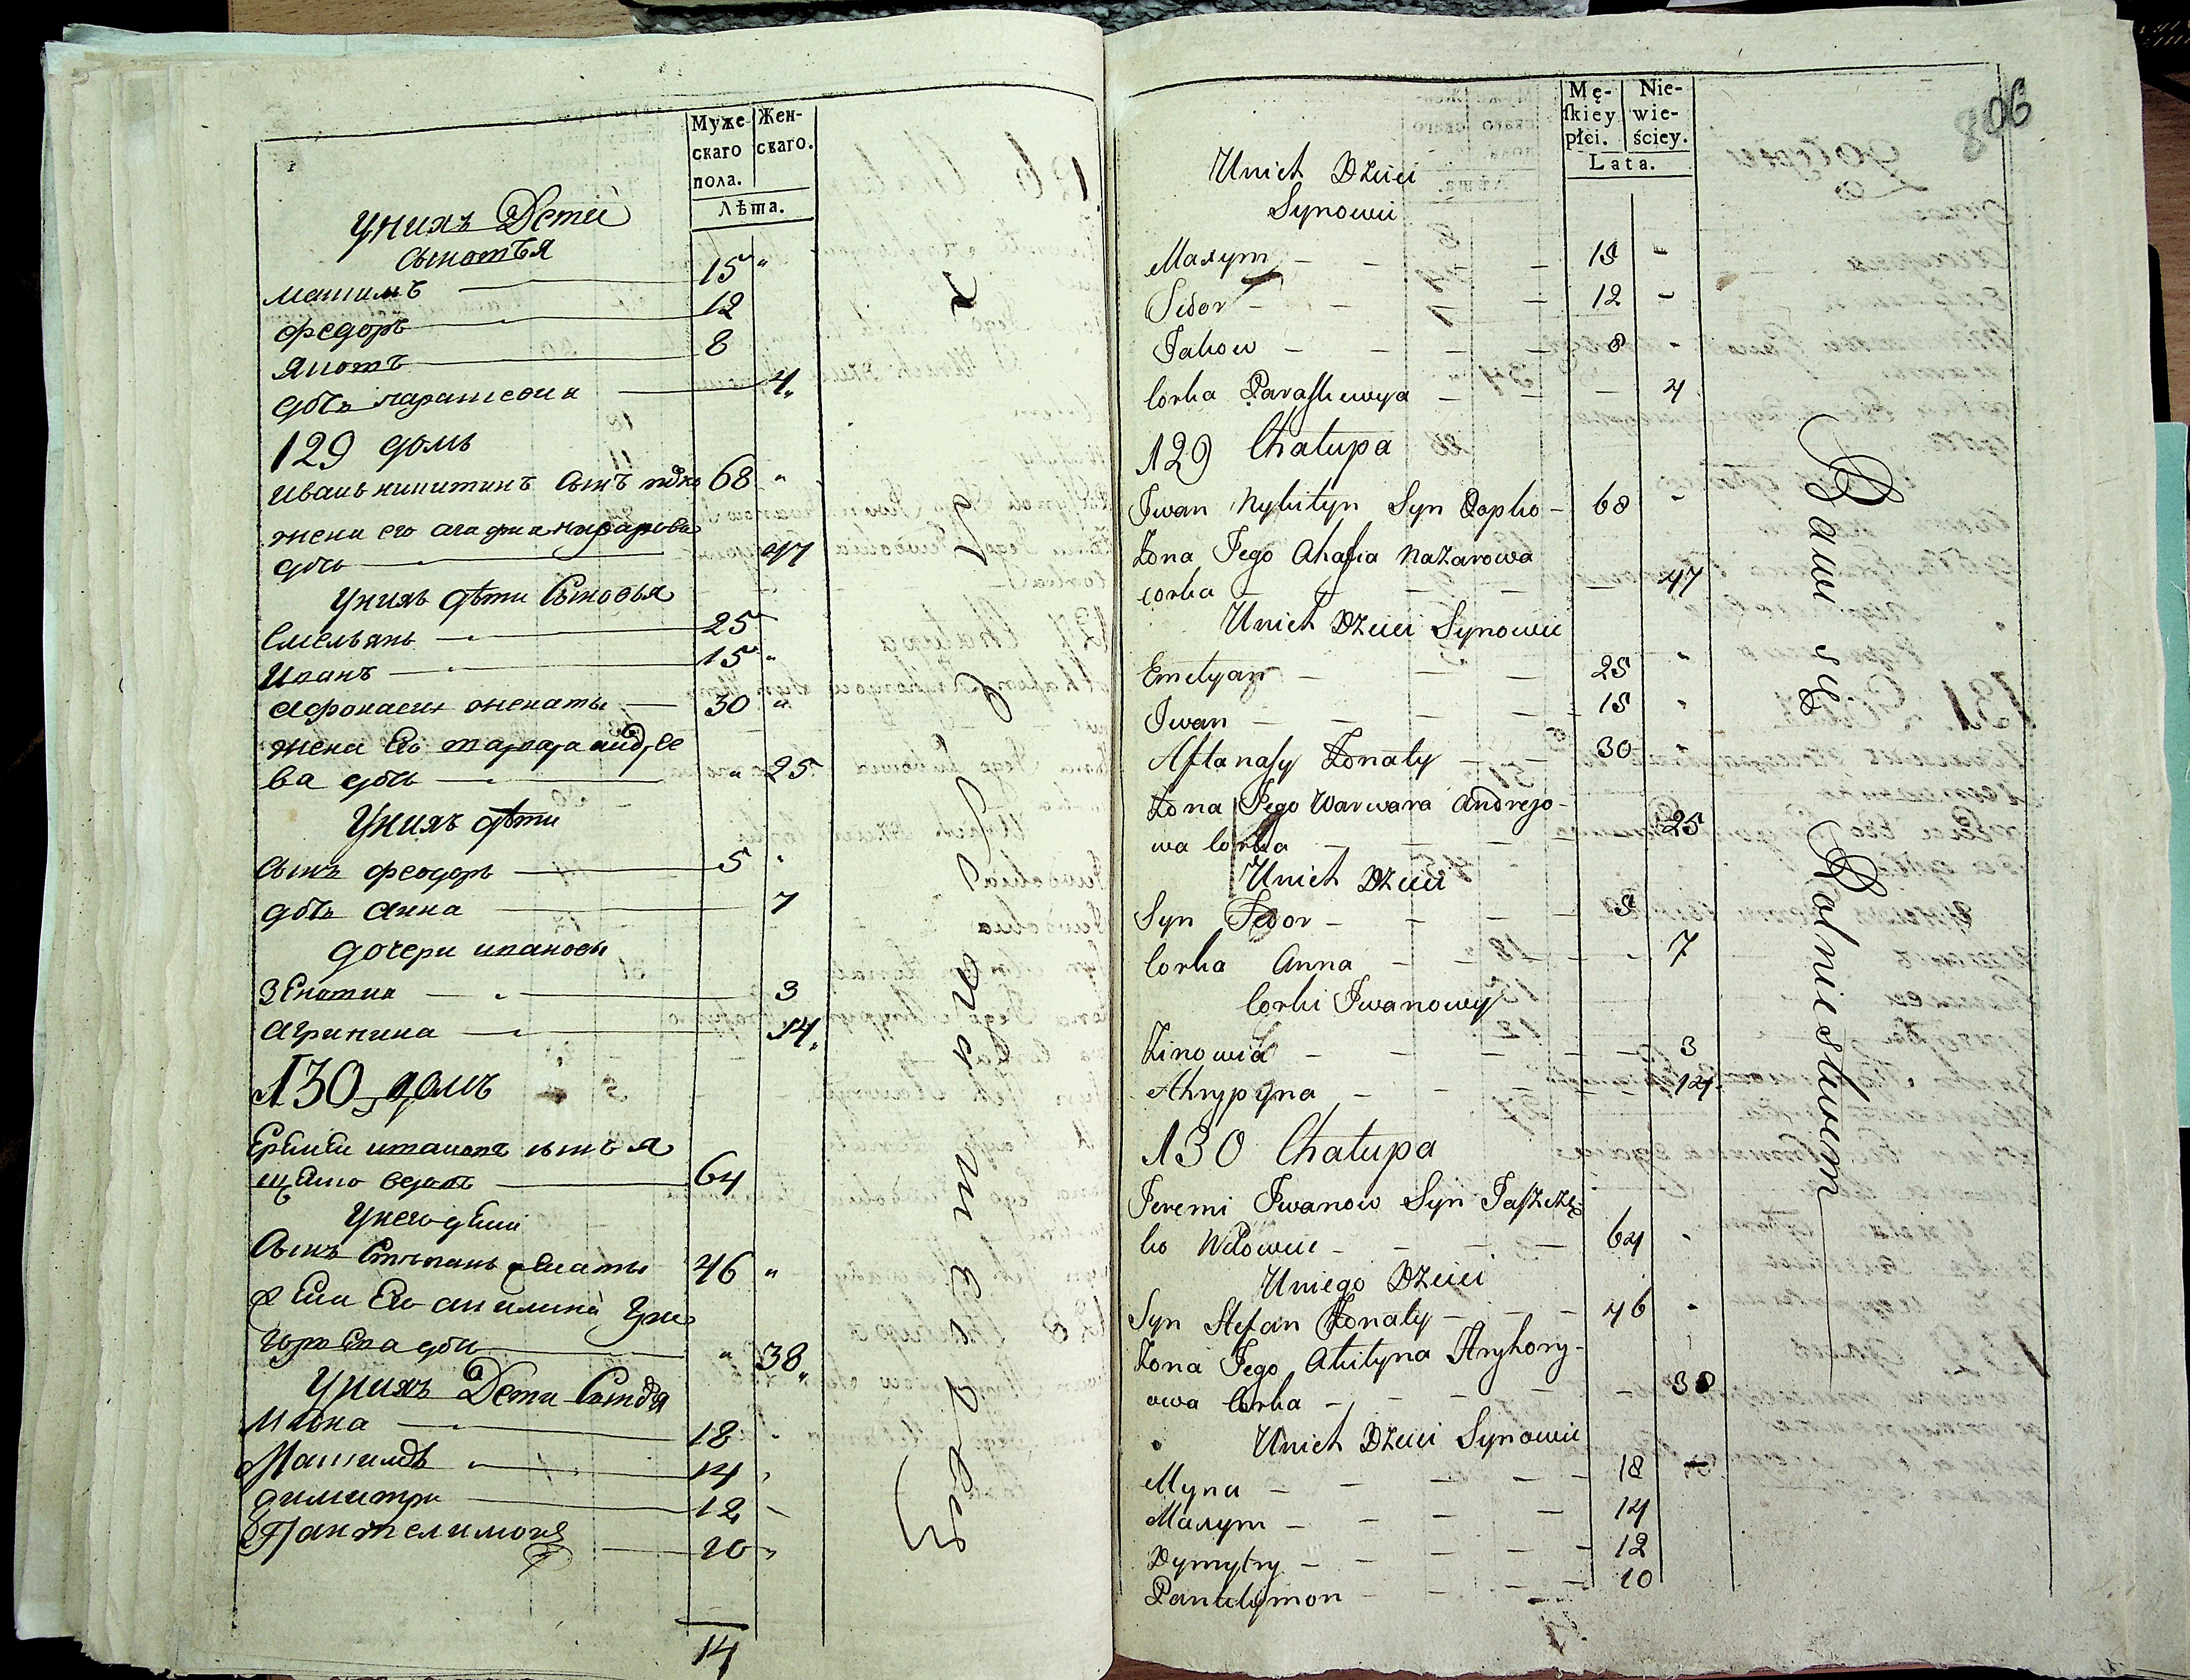 Муже
скаго
пола.
Жен-
скаго.
Лѣта.
Униχъ Дети
Максимъ 15 "
Федоръ 12
Яковъ 8
4
129 домъ
Иванъ Никитинъ Сынъ 68 "
жена его Агафиа Назарова
дочь 47
Унихъ дѣти Сыновья
Емельянъ 25
Иванъ 15 "
Афонасии женаты 30 "
жена Его Варвара андрее
ва дочь " 25
Унихъ дѣти
Сынъ Феодоръ 5 "
дочь Анна 7
дочери ивановы
Зеновиа 3
Агрипина 14
130 домъ
Еремеи ивановъ сынъ я
64
Унего дети
Сынъ Степанъ женаты 46 "
жена Его акилина Гри
горева дочь " 38
Унихъ Дети
Мина 18
Максимъ 14
Димитри 12
Пантелимонъ 10
14
Mę-
ſkiey
płci.
Nie-
wie-
ściey.
Lata.
Unich Dzieci
Synowie
Maxym - - - 15 -
Fedor - - - 12 -
Jakow - - - 8 -
Corka Paraskiewya - - - 4
129 Chałupa
Iwan Nykityn Syn Popko - 68 "
Zona Jego Ahafia Nazarowa
corka - - - 47
Unich Dzieci Synowie
Emelyan - - - 25 "
Iwan - - - 15 "
Aftanasy Zonaty - - 30 "
Zona Jego Warwara Andrejo-
wa Corka - - - 25
Unich Dzieci
Syn Fedor - - - 5
Corka Anna - - - 7
Corki Iwanowy
Zinowia - - - 3
Ahrypyna - - - 14
130 Chałupa
Jeremi Iwanow Syn Jaszcze
ko Wdowiec - - - 64 "
Uniego Dzieci
Syn Stefan Zonaty - - - 46 "
Zona Jego Akilyna Hryhory-
owa Corka - - - 38
Unich Dzieci Synowie
Myna - - - 18 -
Maxym - - - 14
Dymytry - - - 12
Pantelymon - - - 10
Bawi się Rolnictwem